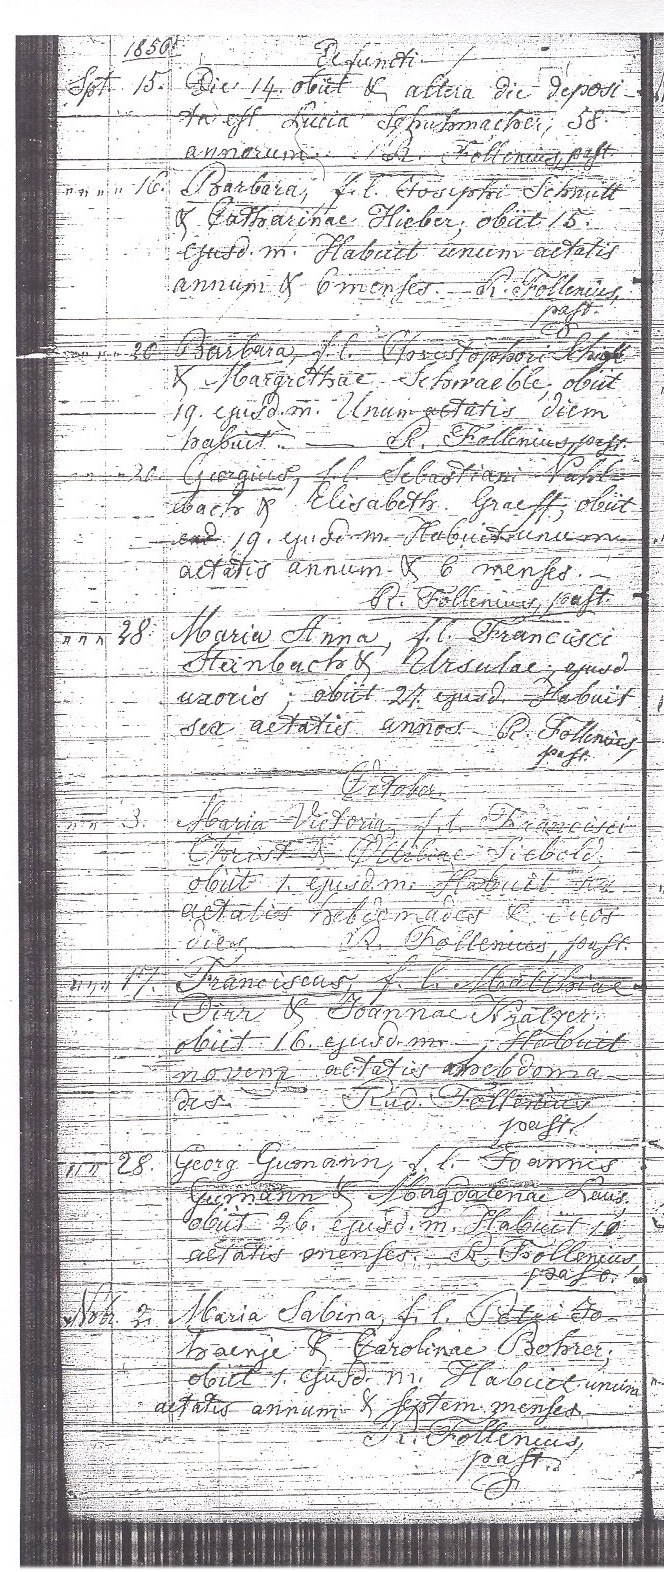 1856
Defuncti.
Spt. 15. Die 14. obiit & altera die deposi-
ta est Lucia Schuhmacher, 58
annorum. R. Follenius, past.
" " " " 16. Barbara, f. l. Josephi Schnutt
& Catharinae Hieber, obiit 15.
ejusd. m. Habuit unum aetatis
annum & 6 menses. — R. Follenius,
past.
" " " 20. Barbara, f. l. Christophori
& Margrethae Schwaeble, obiit
19. ejusd. m. Unum aetatis diem
habuit. — R. Follenius, past.
" " 20. Georgius, f. l. Sebastiani Vahl-
bach & Elisabeth. Graeff, obiit
19. ejusd. m. Habuit unum
aetatis annum & 6 menses. —
R. Follenius, past.
" " " 28. Maria Anna, f. l. Francisci
Steinbach & Ursulae, ejusd.
uxoris; obiit 27. ejusd. Habuit
sex aetatis annos. R. Follenius,
past.
October.
" " " 3. Maria Victoria, f. l. Francisci
Christ & Otiliae Siebold,
obiit 1. ejusd. m. Habuit
aetatis hebdomades & duos
dies. R. Follenius, past.
" " " 17. Franciscus, f. l. Matthiae
Dirr & Joannae
obiit 16. ejusd. m. —, Habuit
novem aetatis hebdoma
des. Rud. Follenius
past.
" " " 28. Georg Gumann, f. l. Joannis
Gumann & Magdalenae Laus.
obiit 26. ejusd. m. Habuit 10
aetatis menses. R. Follenius,
past.
Nobr. 2. Maria Sabina, f. l. Petri Jo-
& Carolinae Bohrer,
obiit 1. ejusd. m. Habuit unum
aetatis annum & septem menses
R. Follenius,
past.